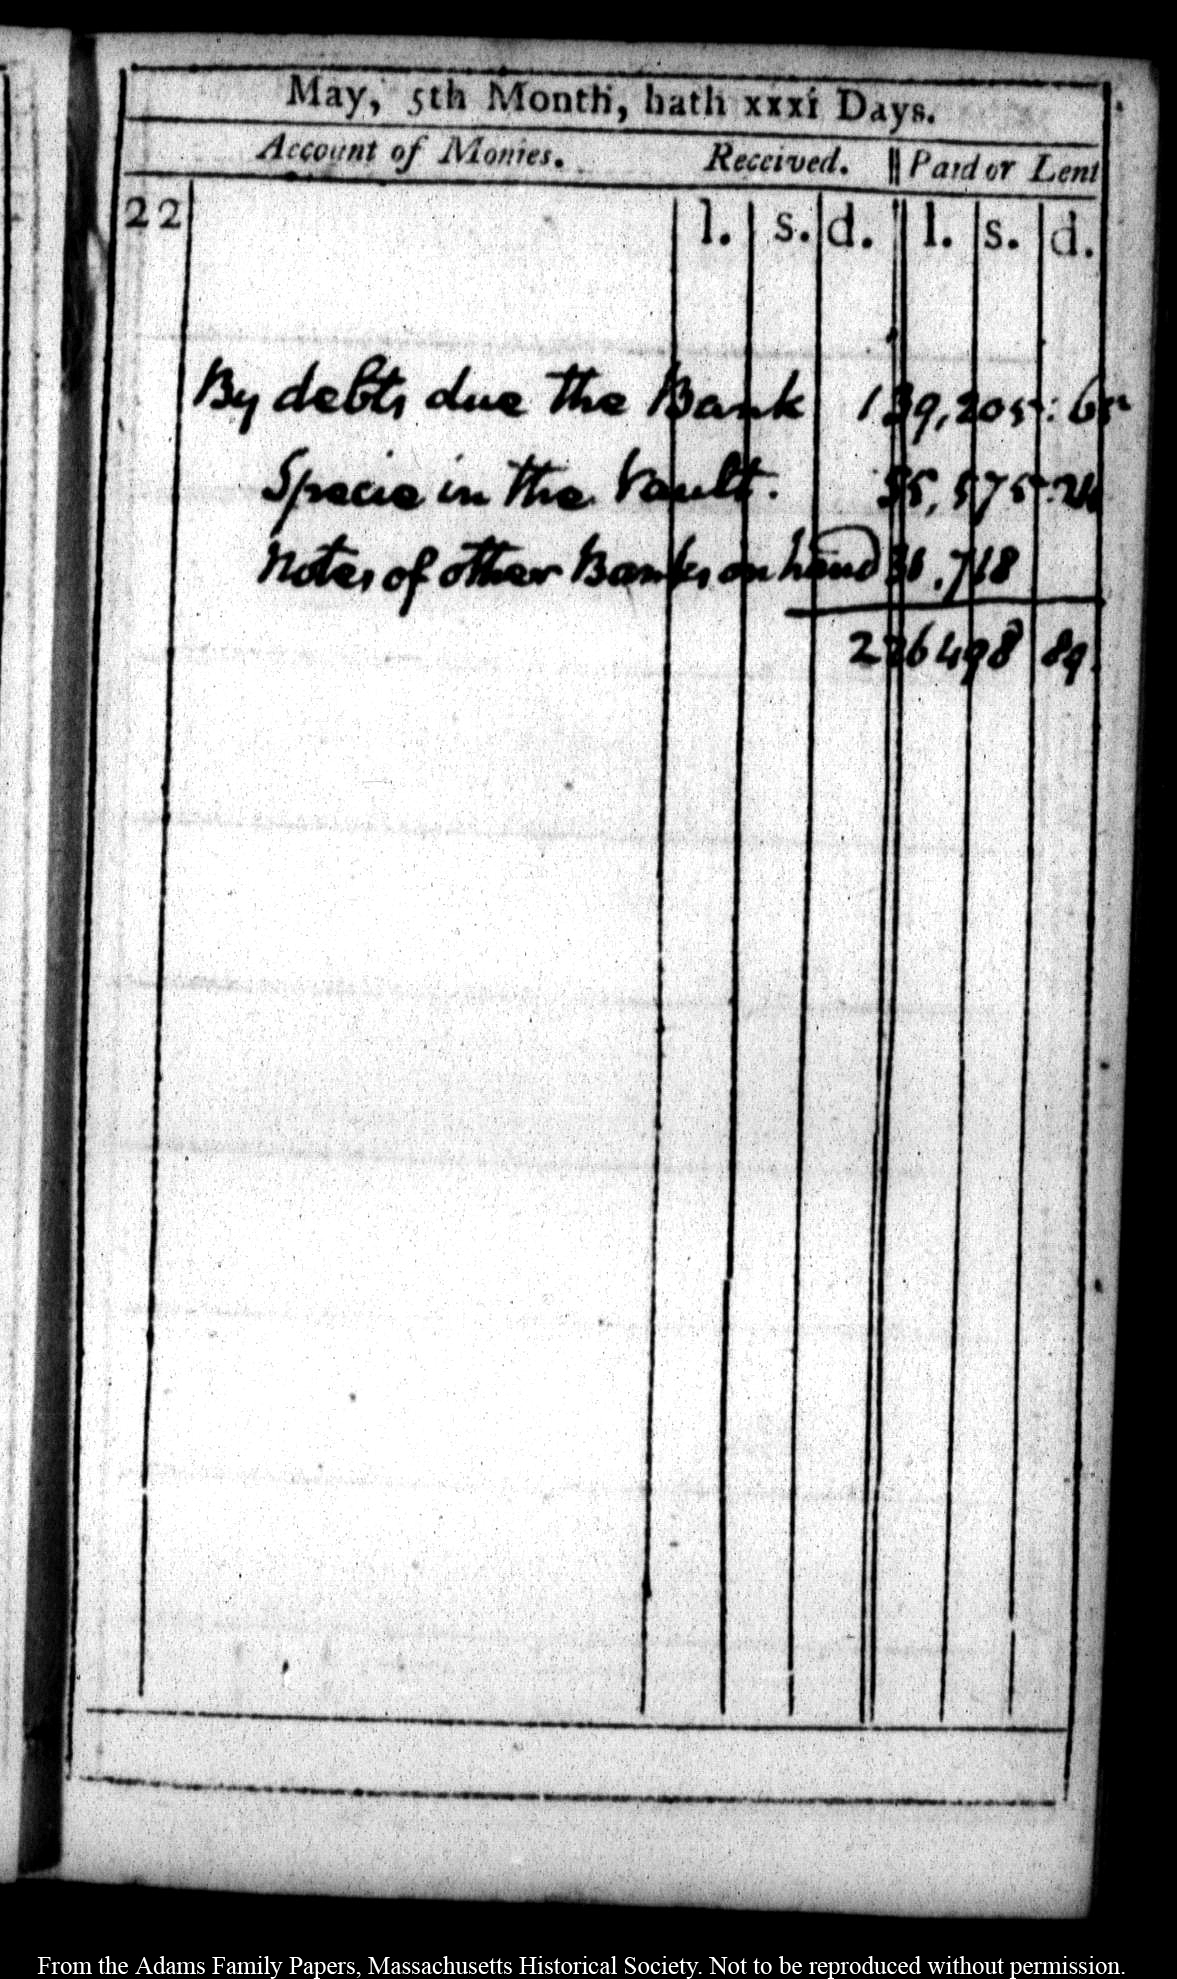 May, 5th Month, hath xxxi Days.
Account of Monies. Received. || Paid or Lent
22 l. s. d. l. s. d.
By debts due the Bank 139,205:65
Specie in the Vault. 55,575:24
Notes of other Banks on hand 31,718
226498 89.
From the Adams Family Papers, Massachusetts Historical Society. Not to be reproduced without permission.